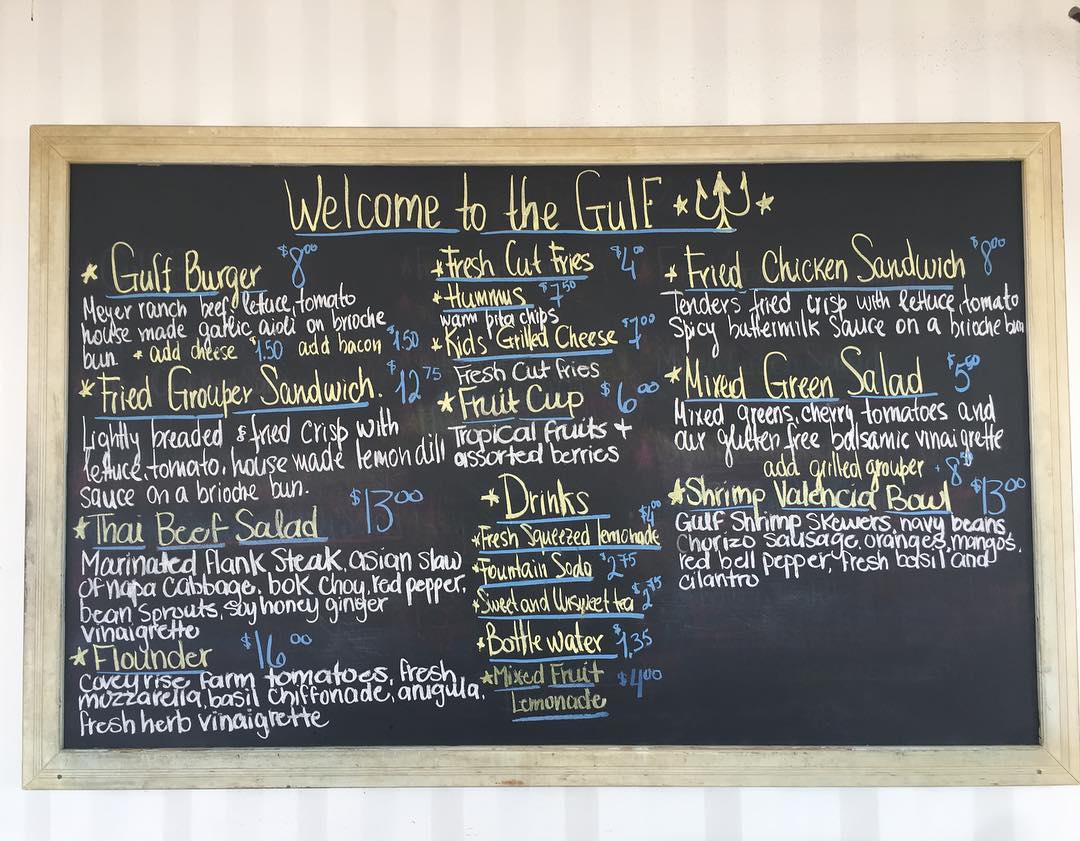 Welcome to the Gulf
Gulf Burger $8.00
Meyer ranch beef, lettuce, tomato
house made garlic aioli on brioche
bun. * add cheese $1.50 add bacon $1.50
Fried Grouper Sandwich. $12.75
Lightly breaded & fried crisp with
lettuce, tomato, house made lemon dill
sauce on a brioche bun.
Thai Beef Salad $13.00
Marinated Flank Steak, asian slaw
of napa cabbage, bok choy, red pepper,
bean sprouts, soy honey ginger
vinaigrette
Flounder $16.00
Covey rise farm tomatoes, fresh
mozzarella, basil chiffonade, arugula,
fresh herb vinaigrette
Fresh Cut Fries $4.00
Hummus $7.50
warm pita chips
Kids' Grilled Cheese $7.00
Fresh Cut fries
Fruit Cup $6.00
Tropical fruits +
assorted berries
Drinks
Fresh Squeezed lemonade $4.00
Fountain Soda $2.75
Sweet and Unsweet tea
Bottle water $1.35
Mixed Fruit $4.00
Lemonade
Fried Chicken Sandwich $8.00
Tenders fried crisp with lettuce, tomato
Spicy buttermilk sauce on a brioche bun
Mixed Green Salad $5.00
Mixed greens, cherry tomatoes and
our gluten free balsamic vinaigrette
add grilled grouper
Shrimp Valencia Bowl $13.00
Gulf Shrimp Skewers, navy beans
Chorizo Sausage, oranges, mangos,
red bell pepper, fresh basil and
cilantro